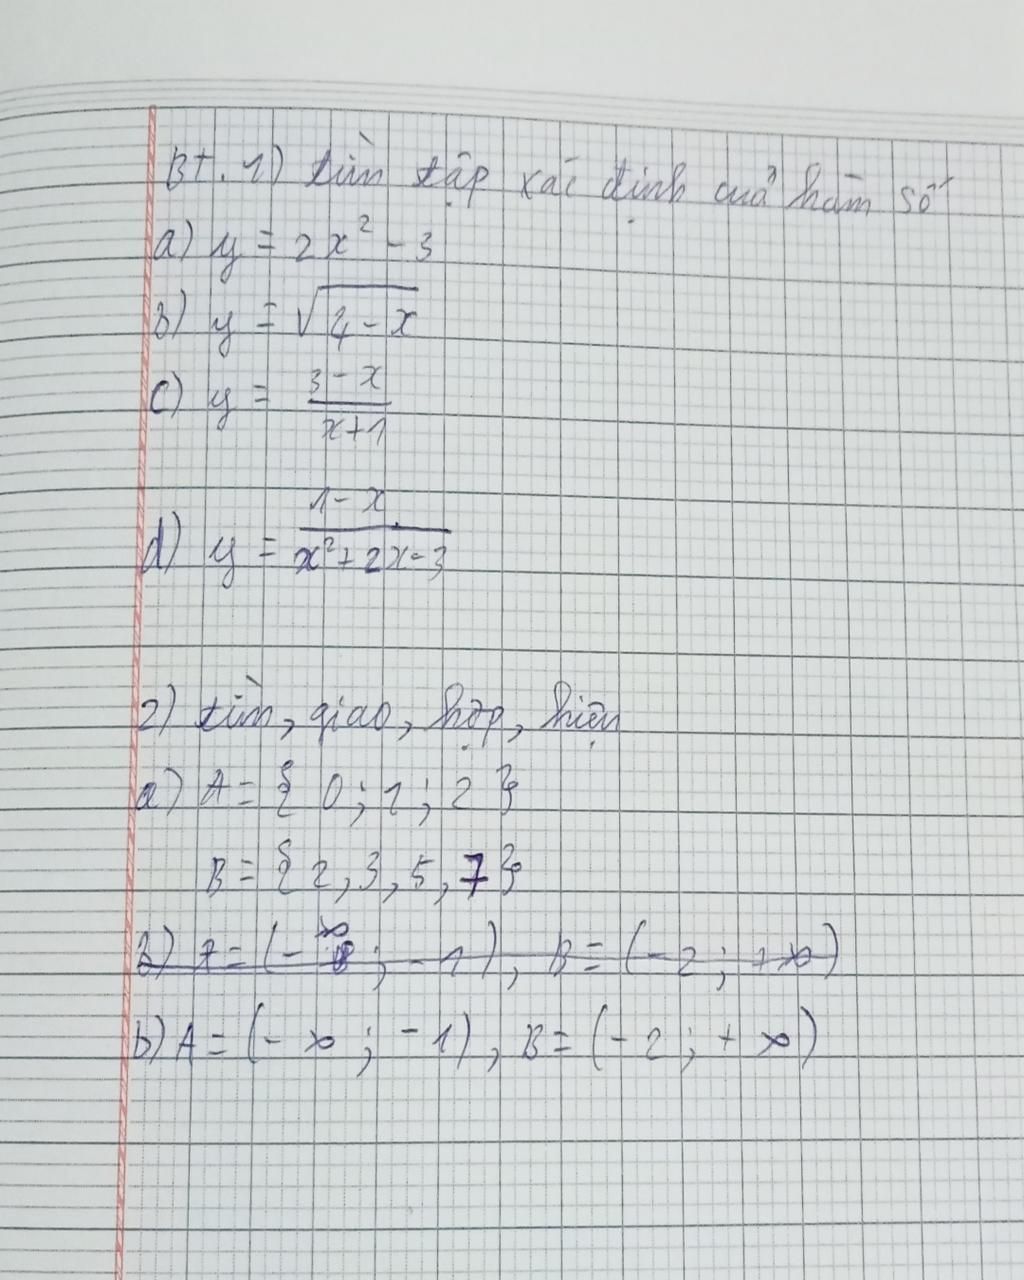 BT. 1) tìm tập xác định của hàm số
a) y = 2x² - 3
b) y = √(4 - x)
c) y = (3 - x)/(x + 1)
d) y = (1 - x)/(x² + 2x - 3)
2) tìm, giao, hợp, hiệu
a) A = { 0 ; 1 ; 2 }
B = { 2, 3, 5, 7 }
b) A = (- ∞ ; - 1), B = (- 2 ; + ∞)
b) A = (- ∞ ; - 1), B = (- 2 ; + ∞)